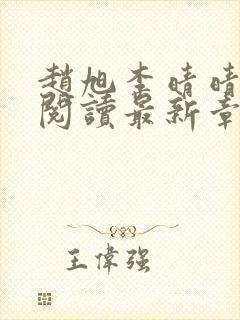 趙旭李晴晴
閱讀最新章
王偉强